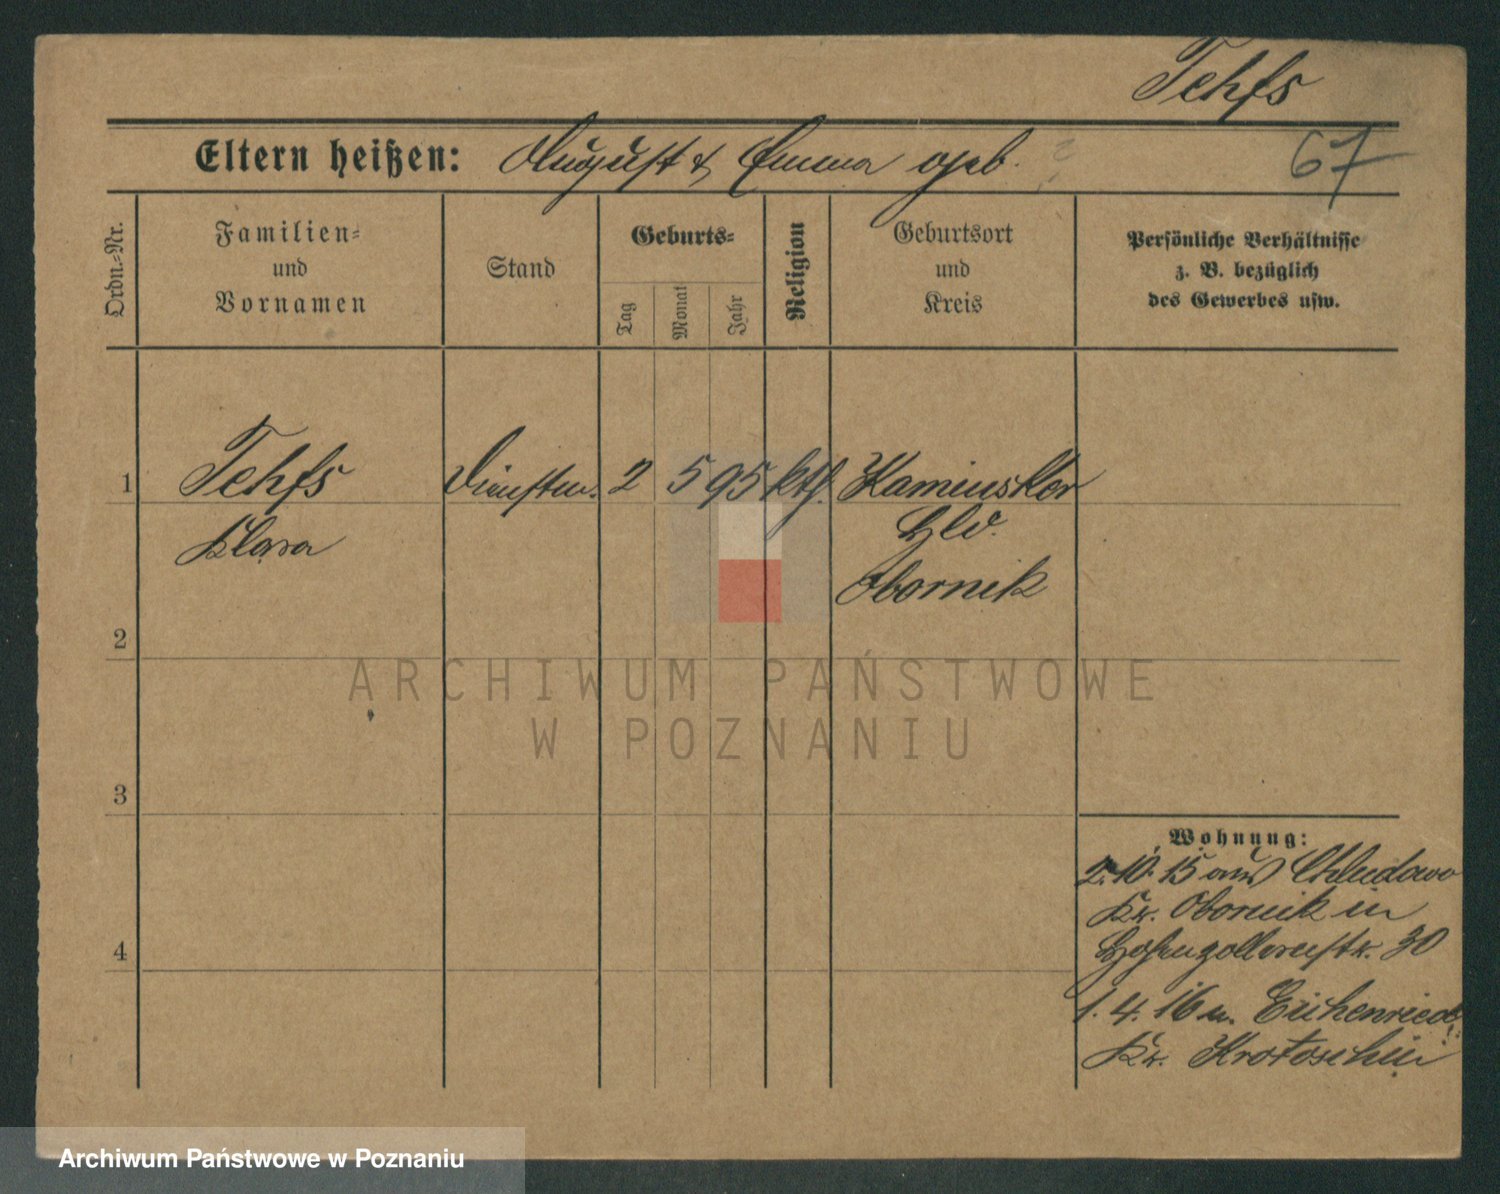 Tehfs
Eltern heißen: August & Emma geb. ?
67
Ordn.-Nr.
Familien-
und
Vornamen
Stand
Geburts-
Tag
Monat
Jahr
Religion
Geburtsort
und
Kreis
Persönliche Verhältnisse
z. B. bezüglich
des Gewerbes usw.
1 Tehfs Dienstm. 2 5 95 kth. Kaminsker
Klara Hld.
Obornik
2
ARCHIWUM PAŃSTWOWE
W POZNANIU
3
Wohnung:
2.10.15 aus Chludowo
Kr. Obornik in
4
Hohenzollernstr. 30
1.4.16 n. Eichenried
Kr. Krotoschin
Archiwum Państwowe w Poznaniu